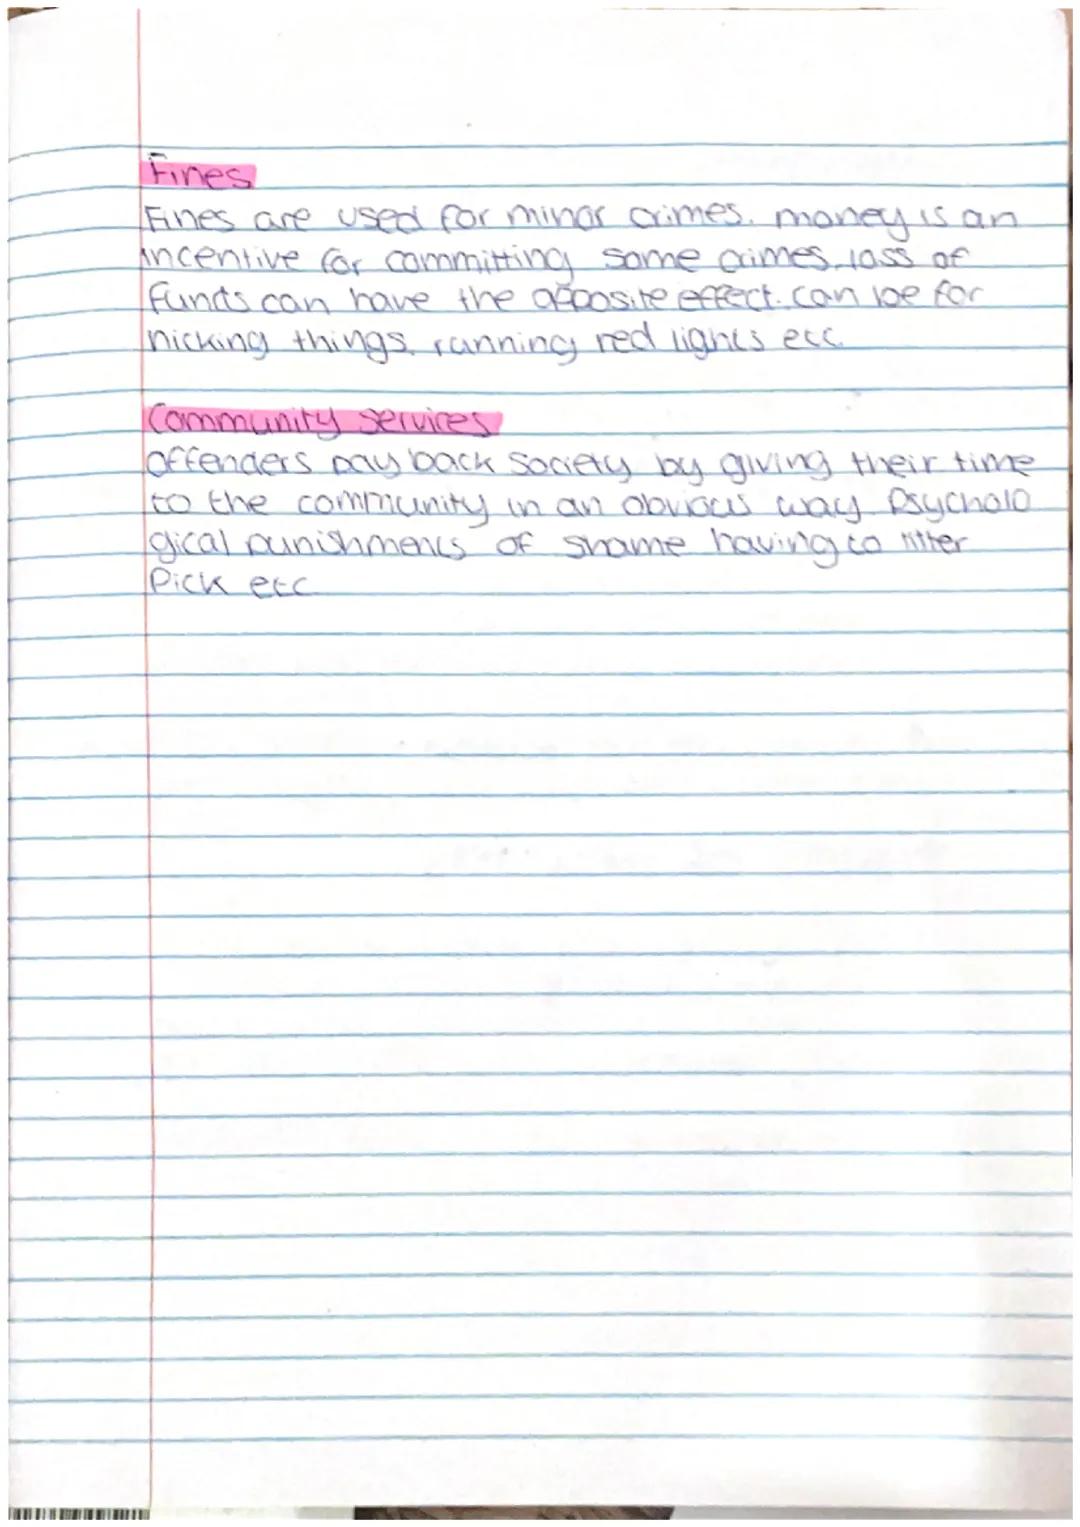 Fines
Fines are used for minor crimes. money is an
incentive for committing some crimes. loss of
funds can have the opposite effect. can be for
nicking things, running red lights ecc.
Community services
offenders pay back society by giving their time
to the community in an obvious way. Psycholo
gical punishments of shame having to litter
Pick etc